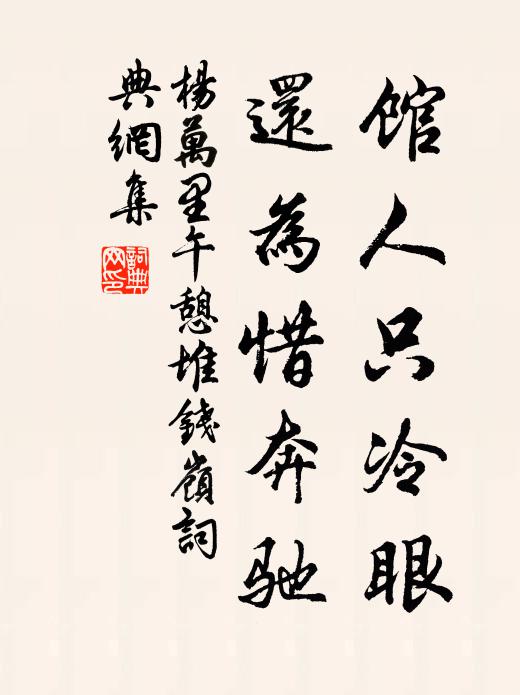 館人只冷眼
還為惜奔馳
楊萬里午憩堆錢嶺詞
典網集
詞典
网印